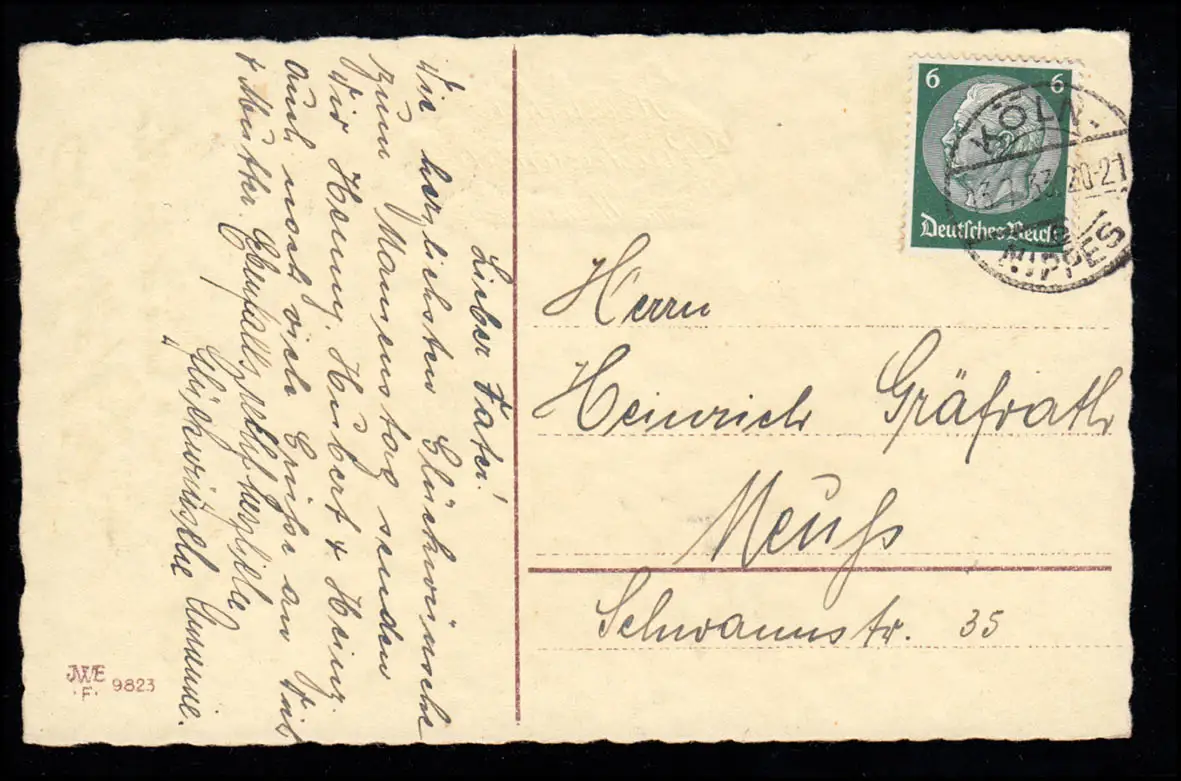 Lieber Vater!
Die herzlichsten Glückwünsche
zum Namenstag senden
Dir Henny, Hubert & Heinz.
Auch noch viele Grüße an
& Mutter. Ebenfalls herzliche
Glückwünsche
6 6
Deutsches Reich
KÖLN
20-21
NIPPES
Herrn
Heinrich Gräfrath
Neuß
Schwannstr. 35
JWE
9823